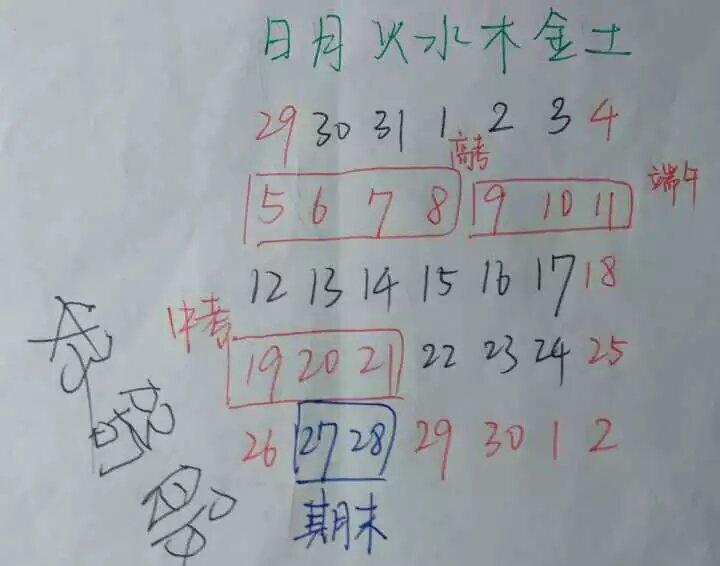 日月火水木金土
29 30 31 1 2 3 4
高考
5 6 7 8 9 10 11 端午
12 13 14 15 16 17 18
中考
19 20 21 22 23 24 25
26 27 28 29 30 1 2
期末